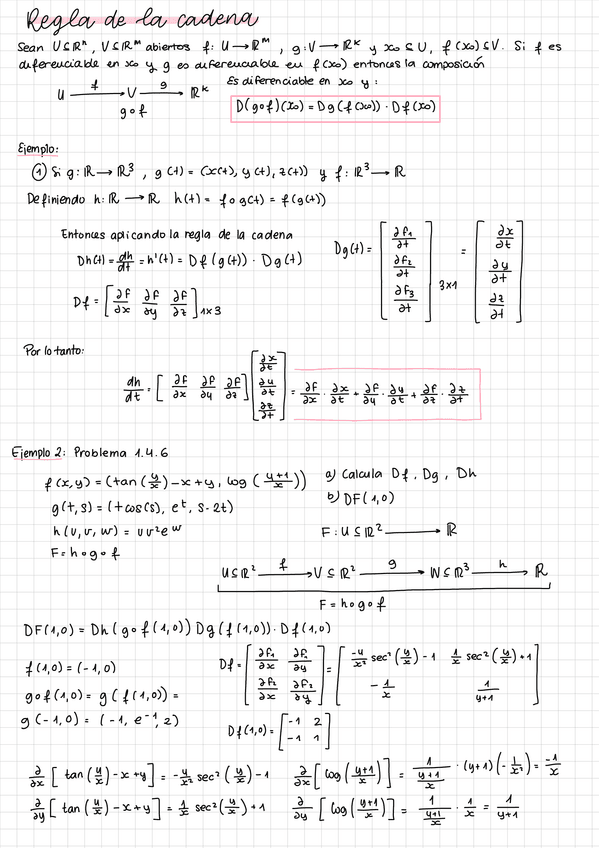 Regla de la cadena
Sean U⊆ℝⁿ, V⊆ℝᵐ abiertos f: U → ℝᵐ, g: V → ℝᵏ y x₀ ∈ U, f(x₀) ∈ V. Si f es
diferenciable en x₀ y g es diferenciable en f(x₀) entonces la composición
U —f→ V —g→ ℝᵏ Es diferenciable en x₀ y:
g∘f D(g∘f)(x₀) = Dg(f(x₀)) · Df(x₀)
Ejemplo:
① Si g: ℝ → ℝ³, g(t) = (x(t), y(t), z(t)) y f: ℝ³ → ℝ
Definiendo h: ℝ → ℝ h(t) = f∘g(t) = f(g(t))
Entonces aplicando la regla de la cadena
Dh(t) = dh/dt = h'(t) = Df(g(t)) · Dg(t)
Dg(t) = [∂f₁/∂t ; ∂f₂/∂t ; ∂f₃/∂t] 3x1 = [∂x/∂t ; ∂y/∂t ; ∂z/∂t]
Df = [∂f/∂x ∂f/∂y ∂f/∂z] 1x3
Por lo tanto:
dh/dt = [∂f/∂x ∂f/∂y ∂f/∂z] [∂x/∂t ; ∂y/∂t ; ∂z/∂t] = ∂f/∂x · ∂x/∂t + ∂f/∂y · ∂y/∂t + ∂f/∂z · ∂z/∂t
Ejemplo 2: Problema 1.4.6
f(x,y) = (tan(y/x) - x + y, log(y+1/x)) a) Calcula Df, Dg, Dh
g(t,s) = (t cos(s), eᵗ, s-2t) b) DF(1,0)
h(u,v,w) = uv²eʷ F: U⊆ℝ² → ℝ
F = h∘g∘f
U⊆ℝ² —f→ V⊆ℝ² —g→ W⊆ℝ³ —h→ ℝ
F = h∘g∘f
DF(1,0) = Dh(g∘f(1,0)) Dg(f(1,0)) · Df(1,0)
f(1,0) = (-1,0)
g∘f(1,0) = g(f(1,0)) =
g(-1,0) = (-1, e⁻¹, 2)
Df = [∂f₁/∂x ∂f₁/∂y ; ∂f₂/∂x ∂f₂/∂y] = [-y/x² sec²(y/x) - 1 1/x sec²(y/x) + 1 ; -1/x 1/y+1]
Df(1,0) = [-1 2 ; -1 1]
∂/∂x [tan(y/x) - x + y] = -y/x² sec²(y/x) - 1 ∂/∂x [log(y+1/x)] = 1/(y+1/x) · (y+1)(-1/x²) = -1/x
∂/∂y [tan(y/x) - x + y] = 1/x sec²(y/x) + 1 ∂/∂y [log(y+1/x)] = 1/(y+1/x) · 1/x = 1/y+1